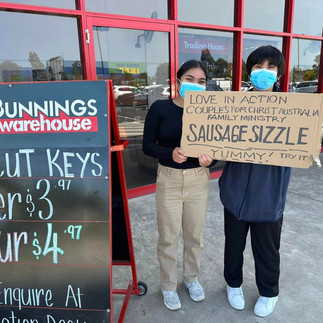 BUNNINGS
warehouse
CUT KEYS
$3.97
$4.97
Enquire At
Trading Hours
LOVE IN ACTION
COUPLES FOR CHRIST AUSTRALIA
FAMILY MINISTRY
SAUSAGE SIZZLE
YUMMY! TRY IT!